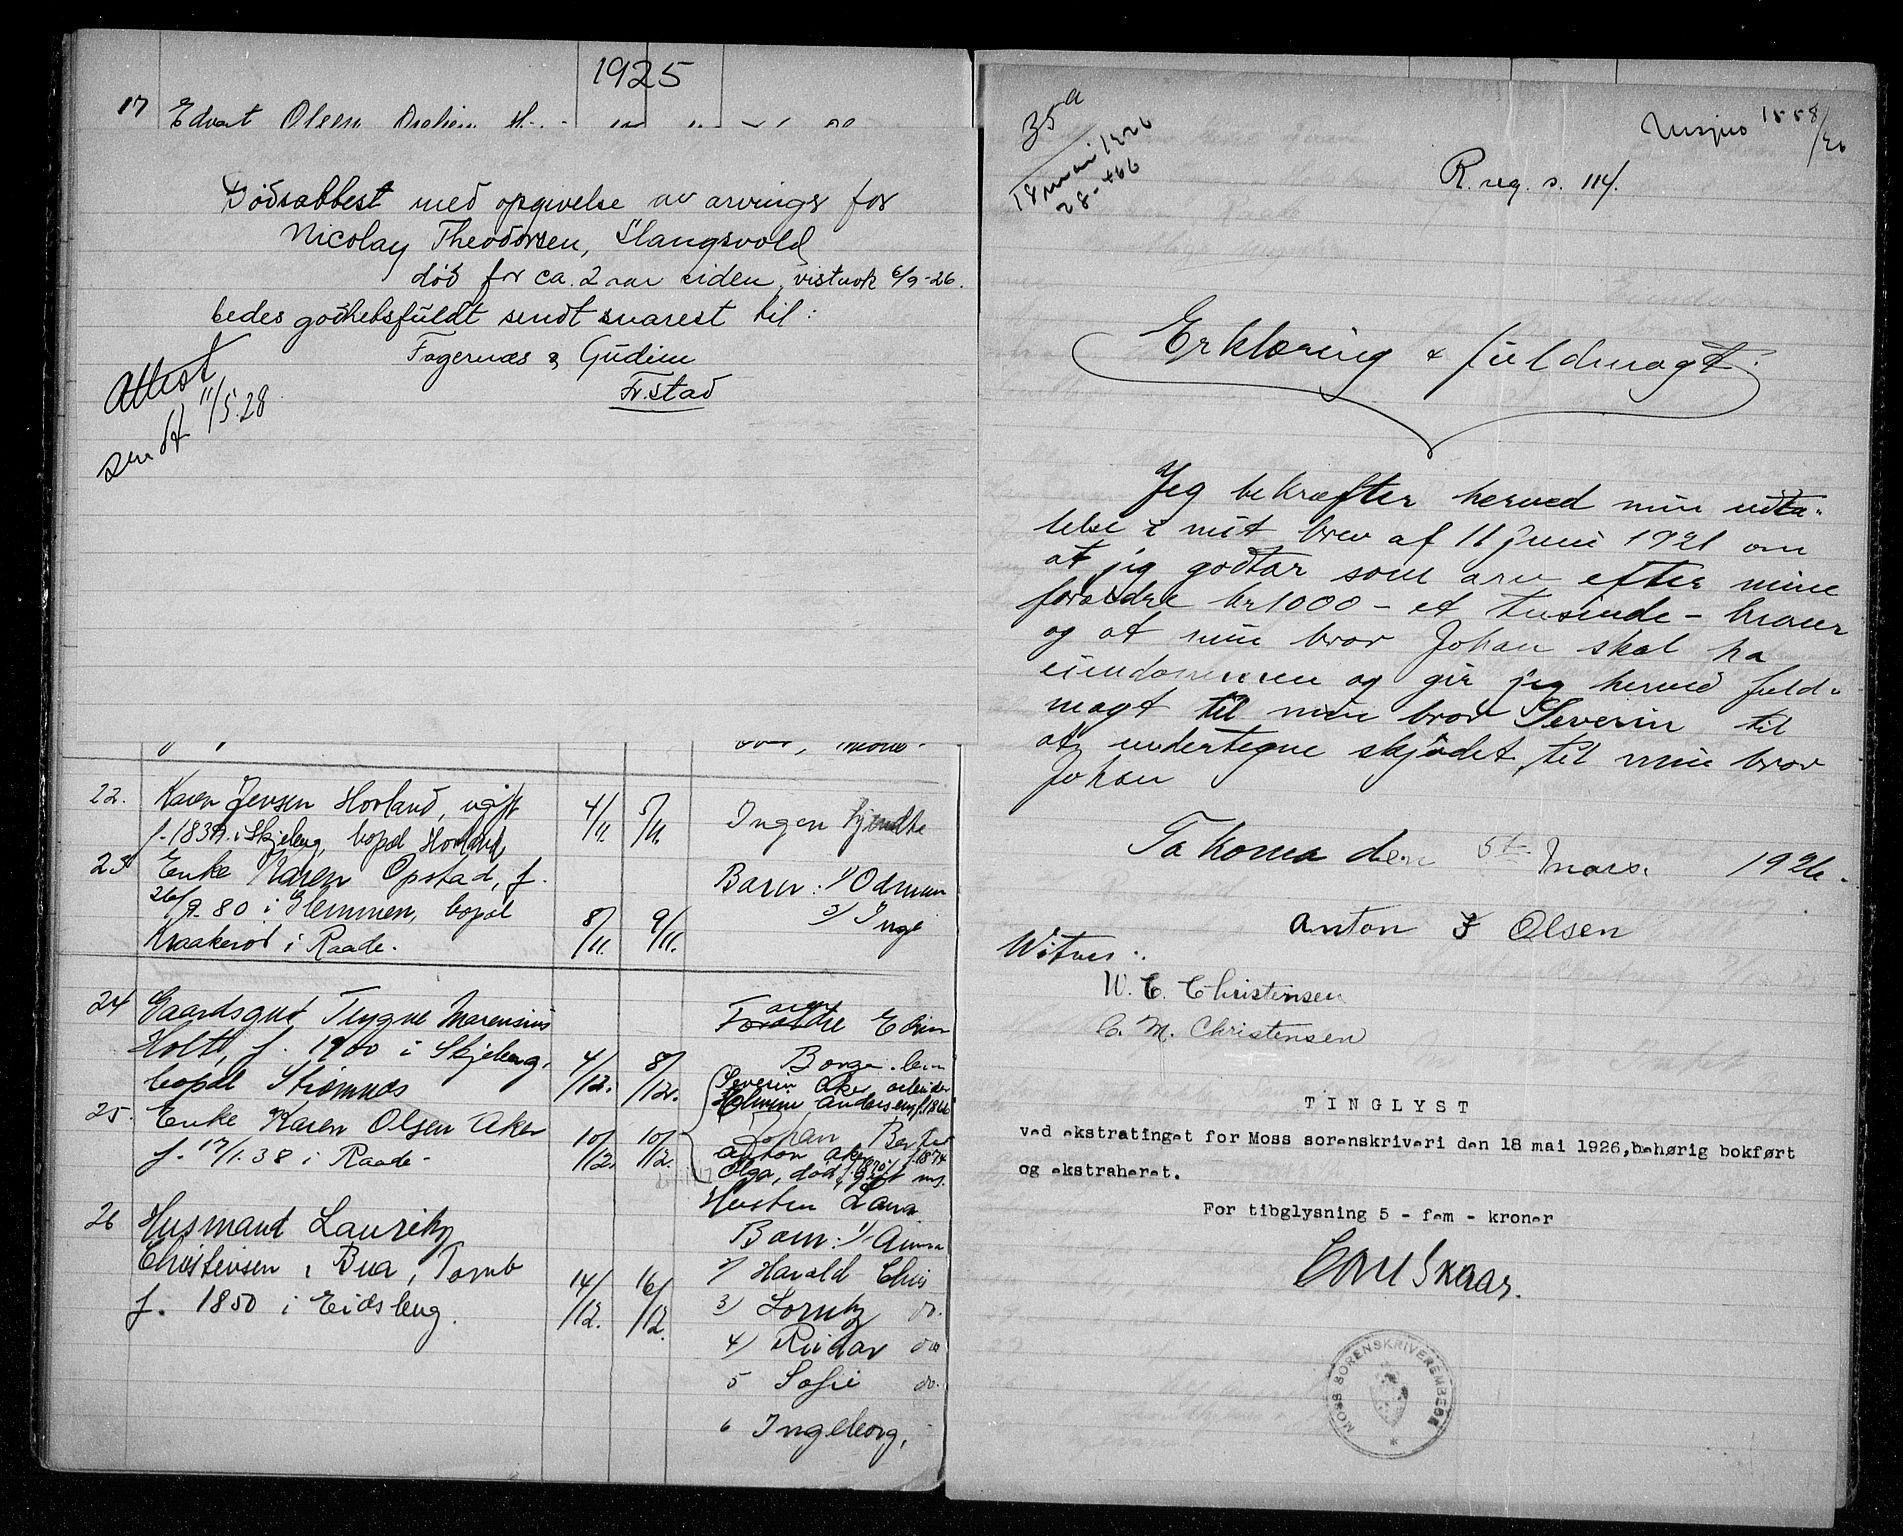 1925
17 Edvart Olsen
Dødsattest med opgivelse av arvinger for
Nicolay Theodorsen, Slangsvold
død for ca. 2 aar siden, vistnok 6/9-26.
bedes godhetsfuldt sendt snarest til:
Fagernæs & Gudim
Fr.stad
Attest
sendt 11/5.28
22. Karen Jensen Hovland, 4/11. 5/11. Ingen kjendte
f. 1839 i Skjeberg, bopæl Hovland
23 Enke Karen Opstad, f. Barn: 1) Odmun
26/9.80 i Glemmen, bopæl 8/11. 9/11. 2) Inge
Kraakerød i Raade.
24 Gaardsgut Trygve Marensius
Holtt, f. 1900 i Skjeberg, 4/12. 8/12. Borge
bopæl Strømnes Severin Aker arbeider
25. Enke Karen Olsen Aker 10/12. 10/12. Johan
f. 17/1.38 i Raade. Anton Aker f. 1874
Olga, død
26 Husmand Lauritz
Christensen, Bua, Tomb 14/12. 16/12. Barn: 1) Anna
f. 1850 i Eidsberg. 2) Harald Chris
3) Lorntz do.
4) Reidar do
5 Sofie do.
6 Ingeborg,
35a
18 mai 1926
28-466
1558/26
R. reg. s. 114.
Erklæring & fuldmagt.
Jeg bekræfter herved min udta-
telse i mit brev af 11 juni 1921 om
at jeg godtar som arv efter mine
forældre kr 1000 - et tusinde - kroner
og at min bror Johan skal ha
eiendommen og gir jeg herved fuld-
magt til min bror Severin til
at undertegne skjødet til min bror
Johan
Takoma den 5t Mars. 1926.
Anton Olsen
Witnes:
W. C. Christensen
C. M. Christensen
TINGLYST
ved ekstratinget for Moss sorenskriveri den 18 mai 1926, behørig bokført
og ekstraheret.
For tibglysning 5 - fem - kroner
Carl Skaar.
MOSS SORENSKRIVEREMBEDE